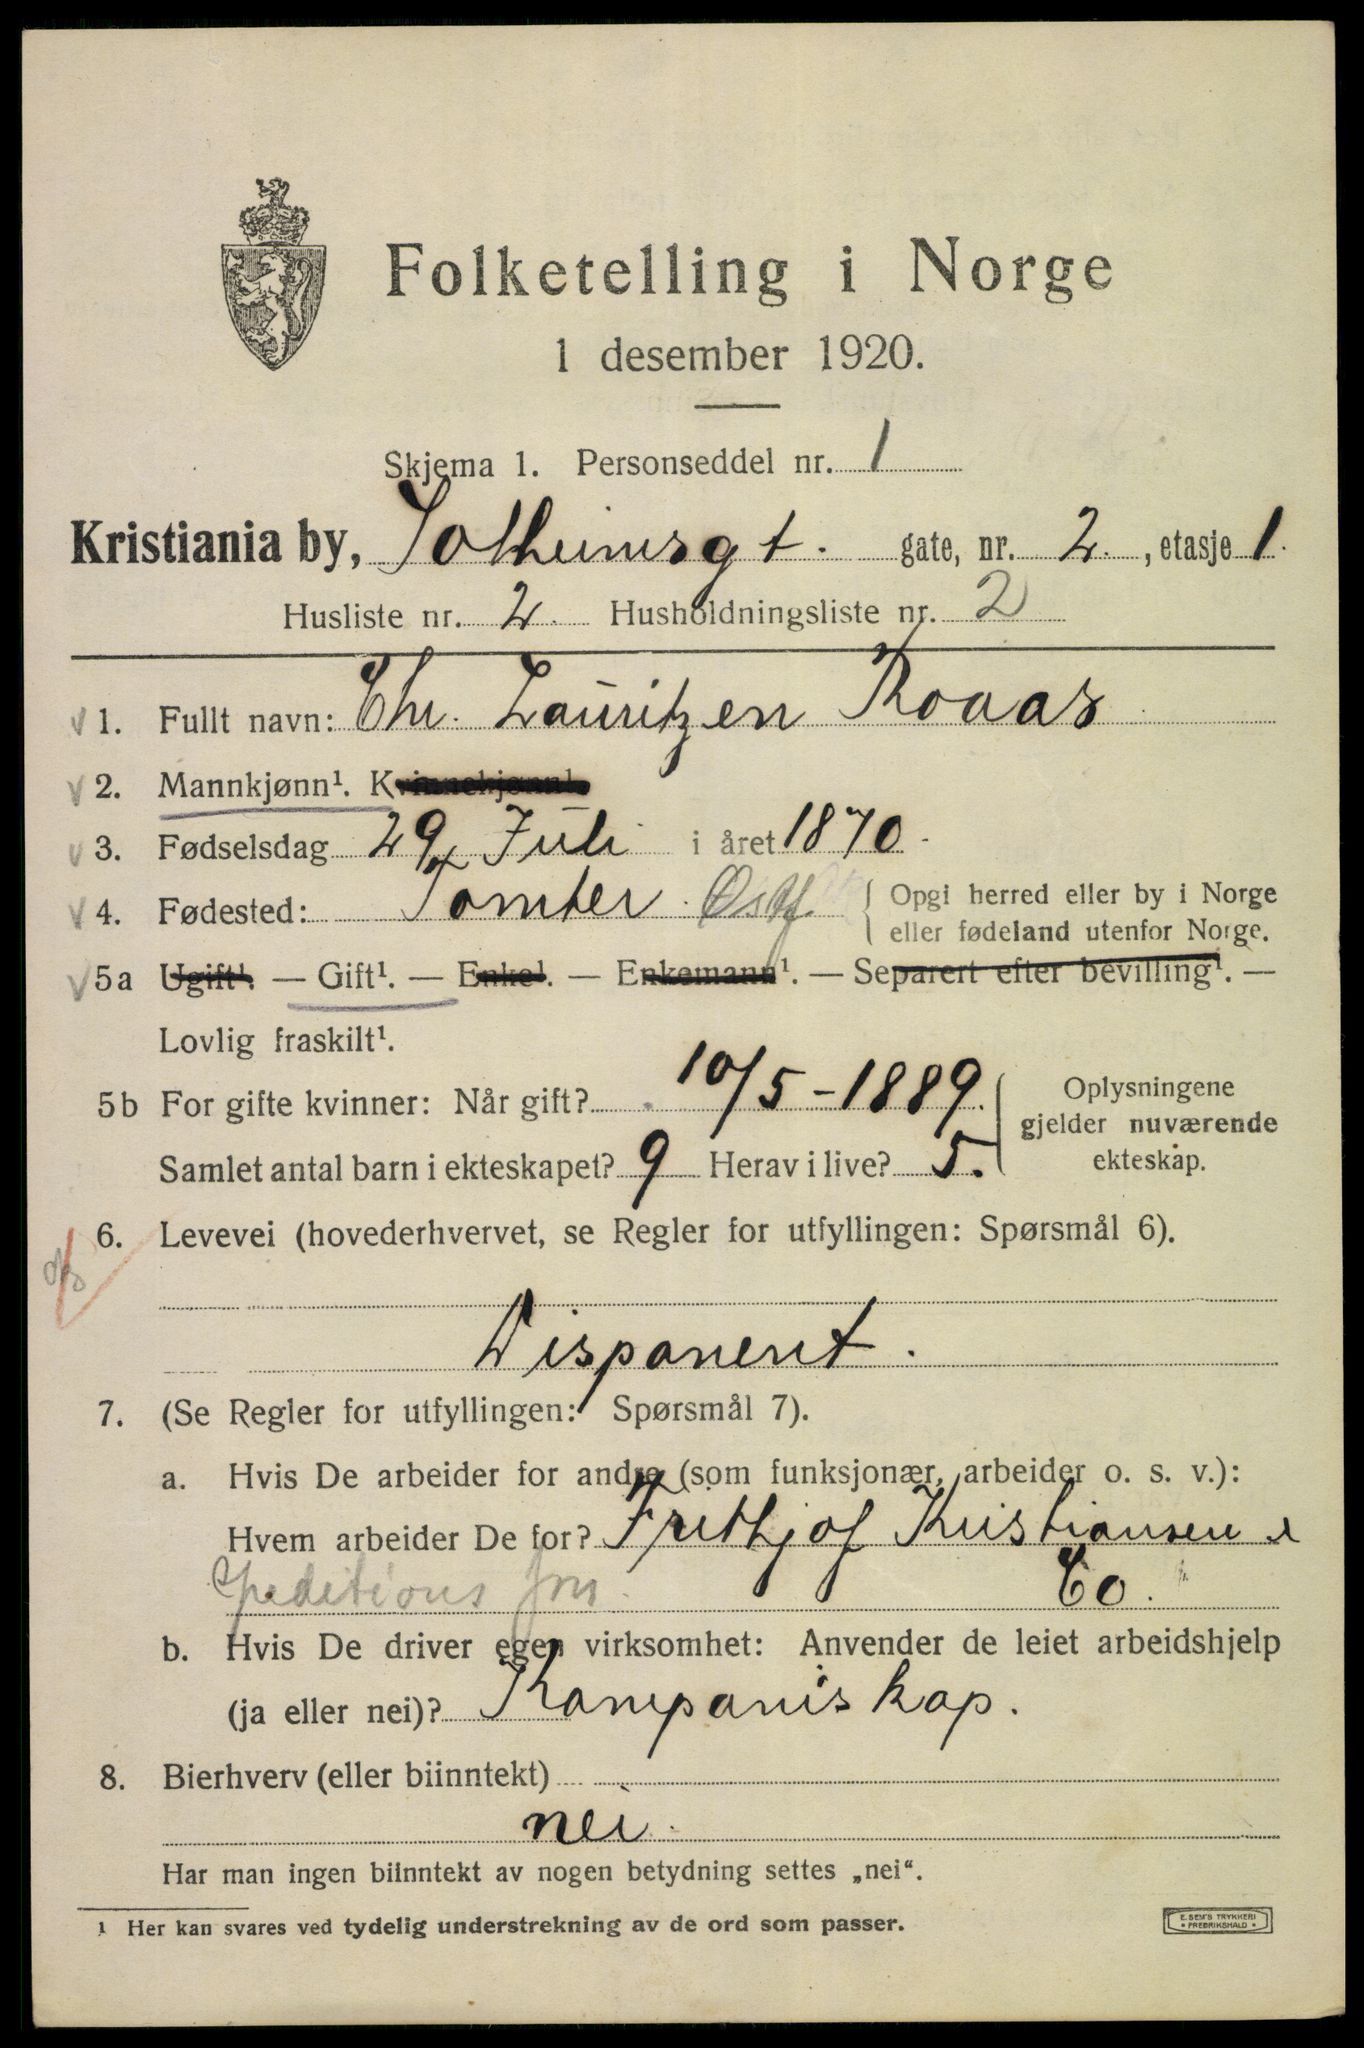 Folketelling i Norge
1 desember 1920.
Skjema 1. Personseddel nr. 1
Kristiania by, Sotheimsgt. gate, nr. 2, etasje 1.
Husliste nr. 2. Husholdningsliste nr. 2
1. Fullt navn: Chr. Lauritzen Roaas
2. Mannkjønn¹. Kvinnekjønn¹.
3. Fødselsdag 29 Juli i året 1870.
4. Fødested: Tomter Østf. Opgi herred eller by i Norge
eller fødeland utenfor Norge.
5a Ugift¹. — Gift¹. — Enke¹. — Enkemann¹. — Separert efter bevilling¹. —
Lovlig fraskilt¹.
5b For gifte kvinner: Når gift? 10/5-1889.
Samlet antal barn i ekteskapet? 9 Herav i live? 5.
Oplysningene
gjelder nuværende
ekteskap.
6. Levevei (hovederhvervet, se Regler for utfyllingen: Spørsmål 6).
Disponent.
7. (Se Regler for utfyllingen: Spørsmål 7).
a. Hvis De arbeider for andre (som funksjonær, arbeider o. s. v.):
Hvem arbeider De for? Frithjof Kristiansen &
Speditions frn. Co.
b. Hvis De driver egen virksomhet: Anvender de leiet arbeidshjelp
(ja eller nei)? Kompaniskap.
8. Bierhverv (eller biinntekt)
nei.
Har man ingen biinntekt av nogen betydning settes „nei“.
¹ Her kan svares ved tydelig understrekning av de ord som passer.
E. SEM'S TRYKKERI
• FREDRIKSHALD •